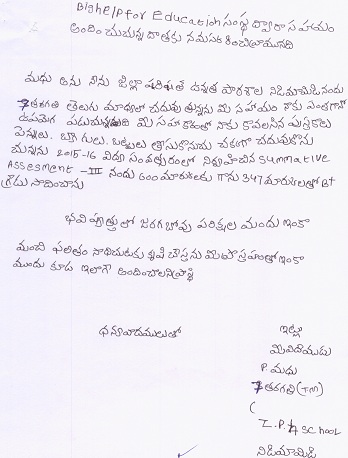 Bighelp for Education సంస్థ ద్వారా సహయం
అందించుచున్న దాతకు నమస్కరించి వ్రాయునది
మధు అను నేను జిల్లా పరిషత్ ఉన్నత పాఠశాల నిడిమామిడి నందు
7 తరగతి తెలుగు మాధ్యలో చదువు తున్నను మీ సహయం నాకు ఎంతగానో
ఉపయెగ పడుచున్నది మీ సహాకారంతో నాకు కావలసిన పుస్తకాలు
పెన్నులు. బ్యాగులు. బట్టలు తీసుకొనుచు చక్కగా చదువుకొను
చున్నను 2015-16 విద్యా సంవత్సరంలో నిర్వహించిన Summative
Assesment - III నందు 600 మారుకులకు గాను 347 మారుకులతో B+
గ్రేడు సాదించాను
భవిష్యత్తులో జరగబోవు పరిక్షల మందు ఇంకా
మంచి ఫలితం సాధించుటకు కృషి చేస్తను మీయెప్రోత్సహంతో ఇంకా
ముందు కూడ ఇలాగే అందించాలని ప్రార్థి
ధన్యవాదములుతో
ఇట్లు
మీవిదేయుడు
P. మధు
7 తరగతి (TM)
(
Z.P.H School
నిడిమామిడి